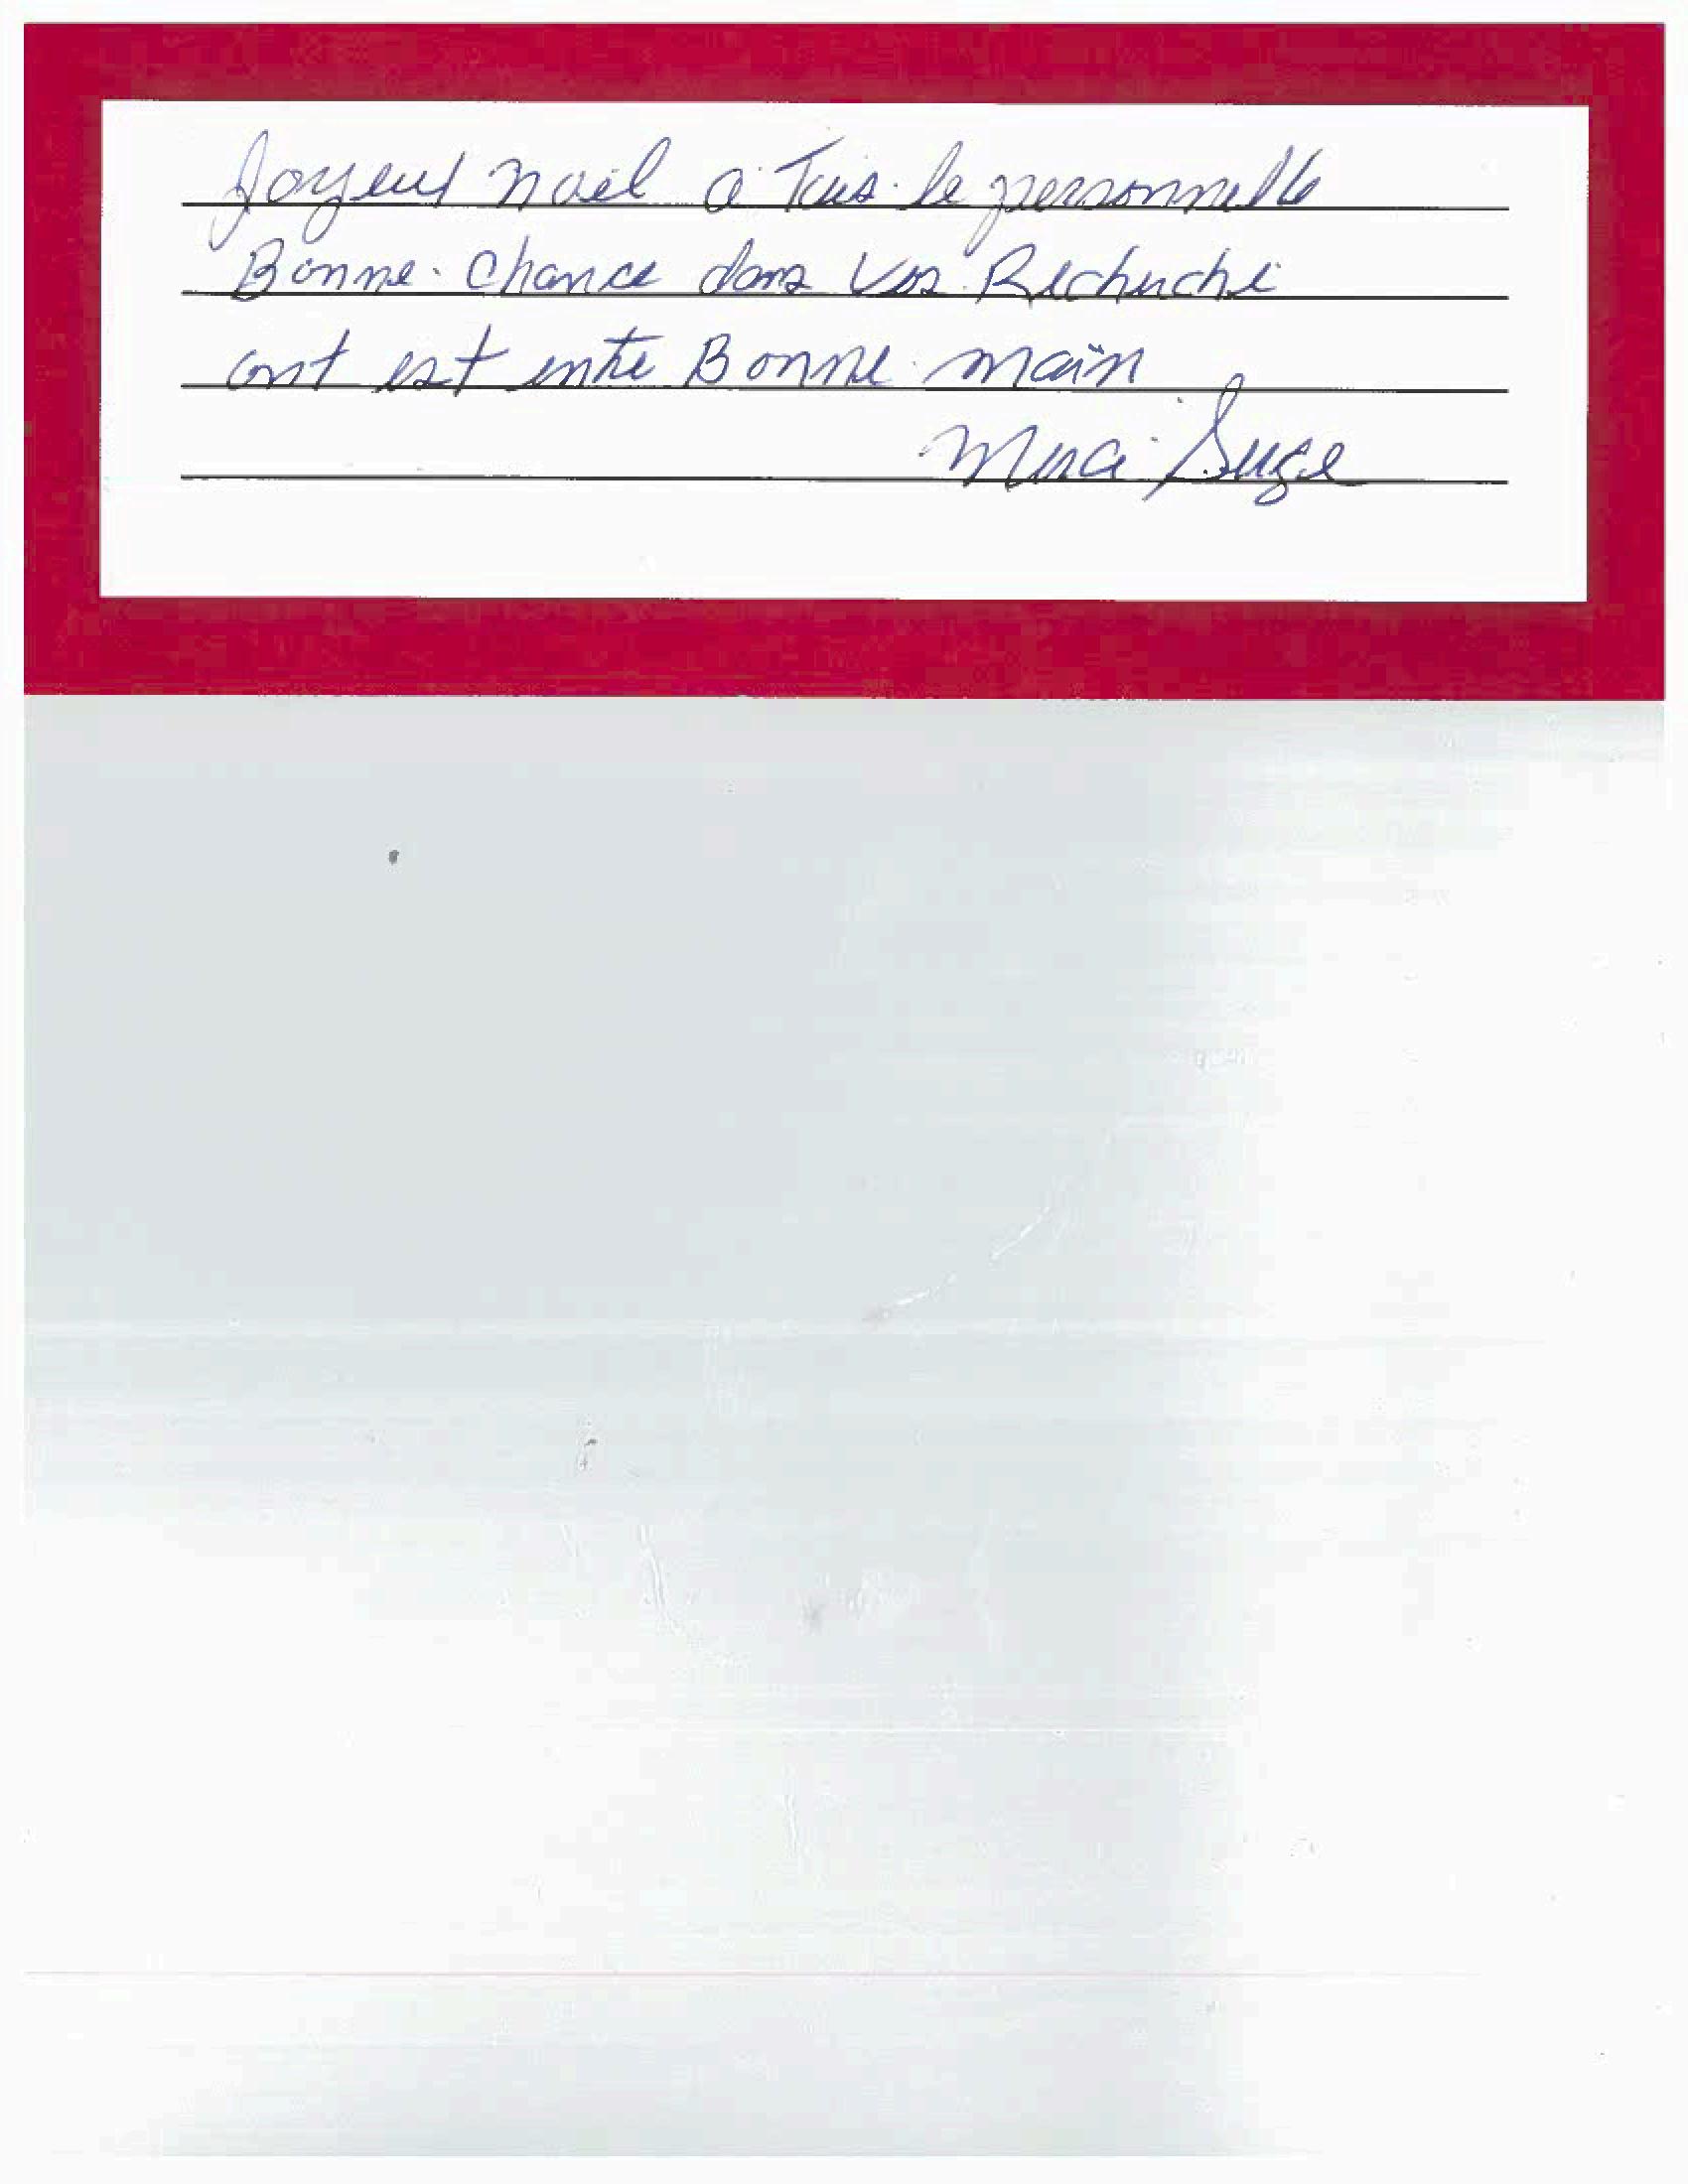 Joyeux noël a Tous le personnelle
Bonne Chance dans Vos Recherche
ont est entre Bonne main
Merci Suze